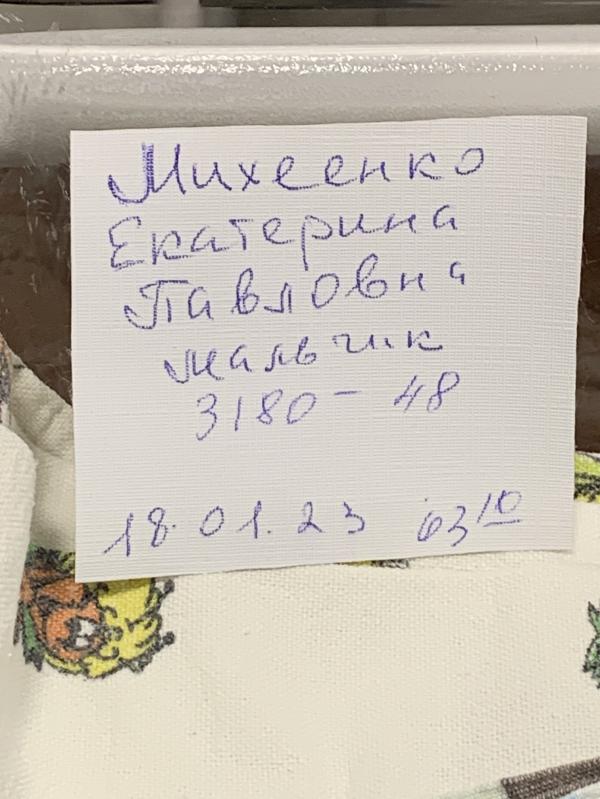 Михеенко
Екатерина
Павловна
мальчик
3180 - 48
18.01.23 03 10